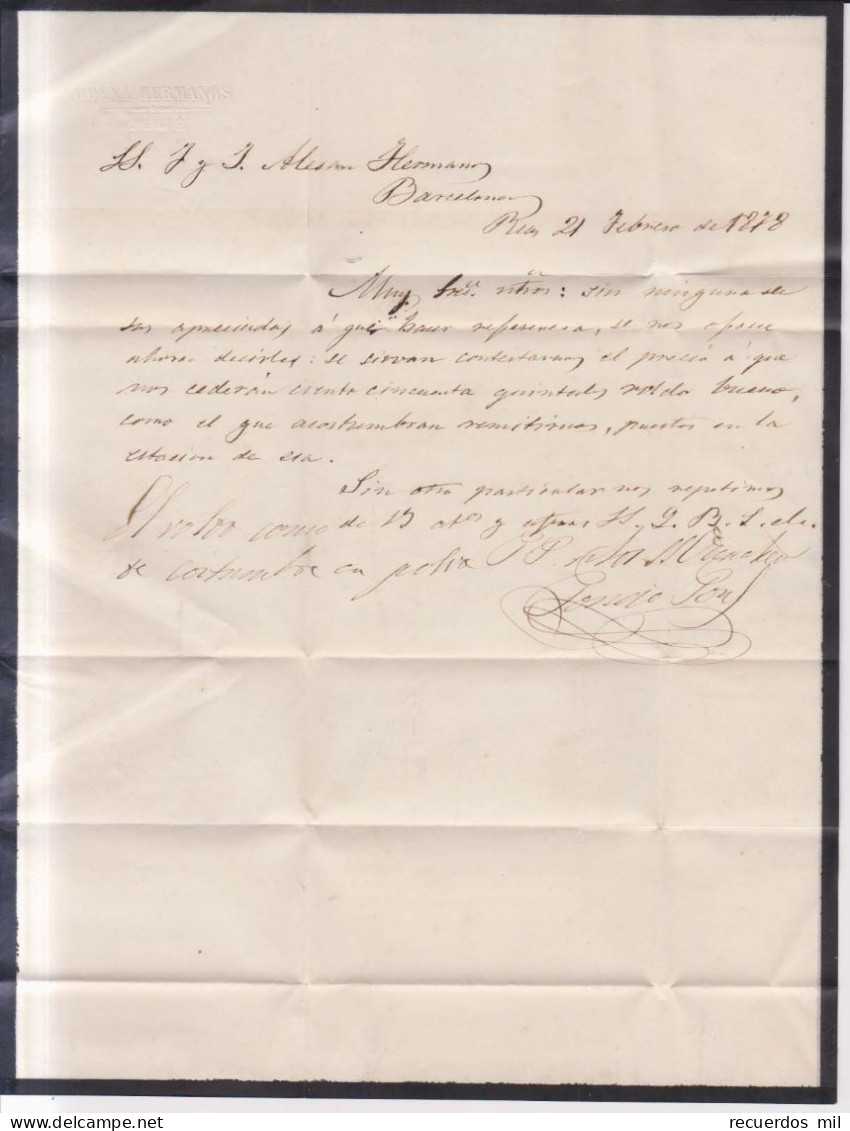 HERMANOS
SS. J y J. Alesan Hermanos
Barcelona
Reus 21 Febrero de 1878
Muy Sres. ntros: sin ninguna de
sus apreciadas á que hacer referencia, se nos ofrece
ahora decirles: se sirvan contestarnos el precio á que
nos cederán ciento cincuenta quintales roldo bueno,
como el que acostumbran remitirnos, puestos en la
estacion de esa.
Sin otro particular nos repetimos
de V atos y S. S. Q. B. S. M.
El roldo como
de costumbre en polvo
P. P. de
Pons
recuerdos mil